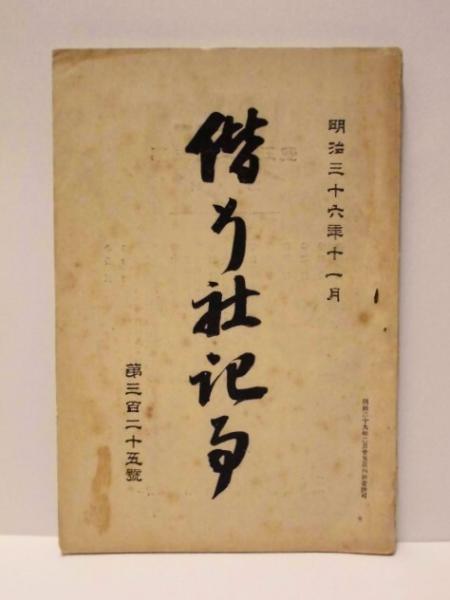 明治三十六年十一月
偕行社記事
第三百二十五號